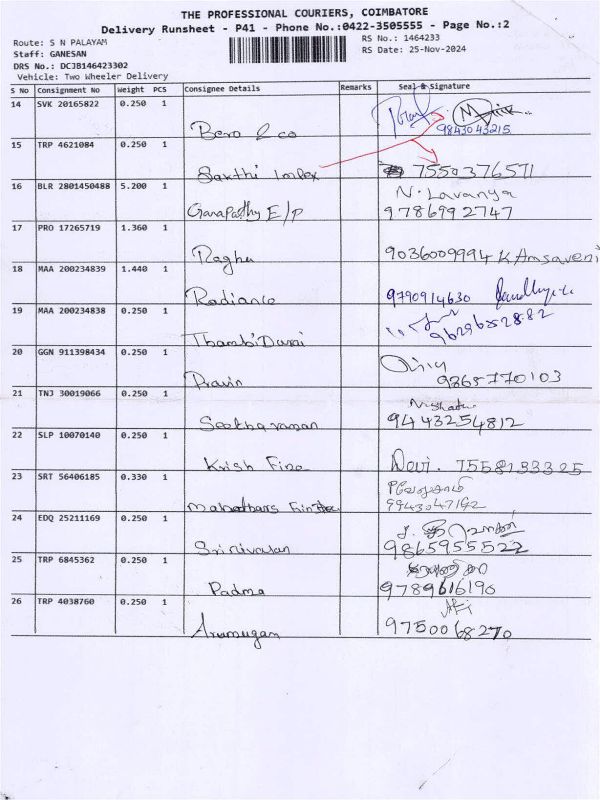 THE PROFESSIONAL COURIERS, COIMBATORE
Delivery Runsheet - P41 - Phone No.:0422-3505555 - Page No.:2
Route: S N PALAYAM
RS No.: 1464233
Staff: GANESAN
RS Date: 25-Nov-2024
DRS No.: DCJB146423302
Vehicle: Two Wheeler Delivery
S No Consignment No Weight PCS Consignee Details Remarks Seal & Signature
14 SVK 20165822 0.250 1
Bero & co 9843043215
15 TRP 4621084 0.250 1
Sakthi Impex 7550376571
16 BLR 2801450488 5.200 1 N. Lavanya
Ganapathy E/P 9786992747
17 PRO 17265719 1.360 1
Raghu 9036009994 K Amsaveni
18 MAA 200234839 1.440 1
Radiance 9790914630
19 MAA 200234838 0.250 1
ThambiDurai 9629652882
20 GGN 911398434 0.250 1
Pravin 9365770103
21 TNJ 30019066 0.250 1
Seetharaman 9443254812
22 SLP 10070140 0.250 1
Krish Fine Devi. 7558133325
23 SRT 56406185 0.330 1
9943047142
24 EDQ 25211169 0.250 1
Srinivasan 9865955522
25 TRP 6845362 0.250 1
Padma 9789616190
26 TRP 4038760 0.250 1
Arumugan 9750068270